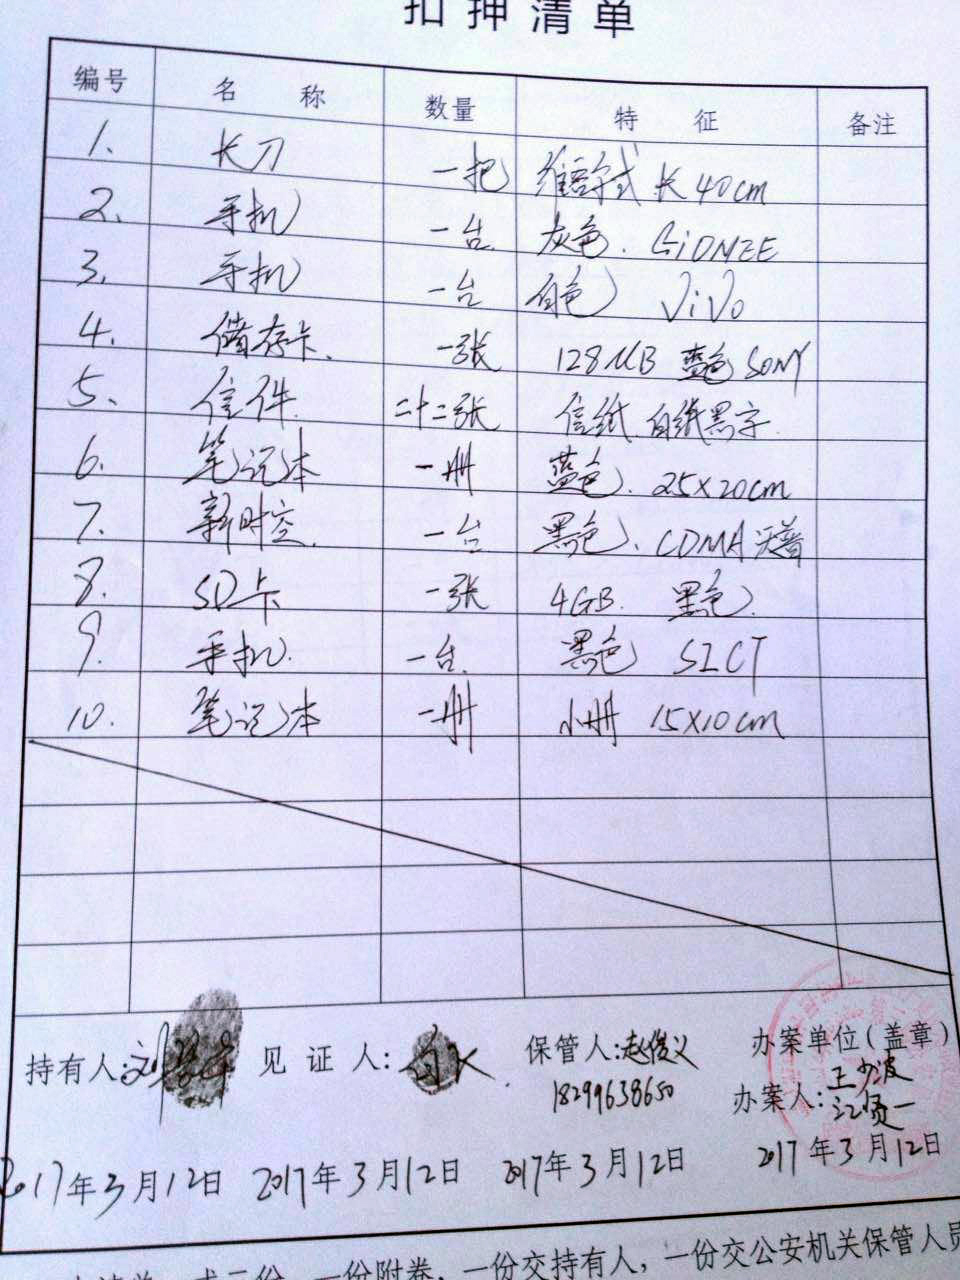 扣押清单
编号 名称 数量 特征 备注
1. 长刀 一把 维吾尔式 长40cm
2、 手机 一台 灰色. GIONEE
3、 手机 一台 白色 ViVo
4. 储存卡. 一张 128MB 蓝色 SONY
5、 信件. 二十二张 信纸 白纸黑字.
6. 笔记本 一册 蓝色. 25×20cm
7、 新时空 一台 黑色、CDMA
8. SD卡 一张 4GB. 黑色.
9. 手机. 一台. 黑色
10. 笔记本 一册 小册 15×10cm
持有人: 见证人: 保管人:赵俊义 办案单位(盖章)
18299638650 办案人:
2017年3月12日 2017年3月12日 2017年3月12日 2017年3月12日
一份附卷,一份交持有人,一份交公安机关保管人员